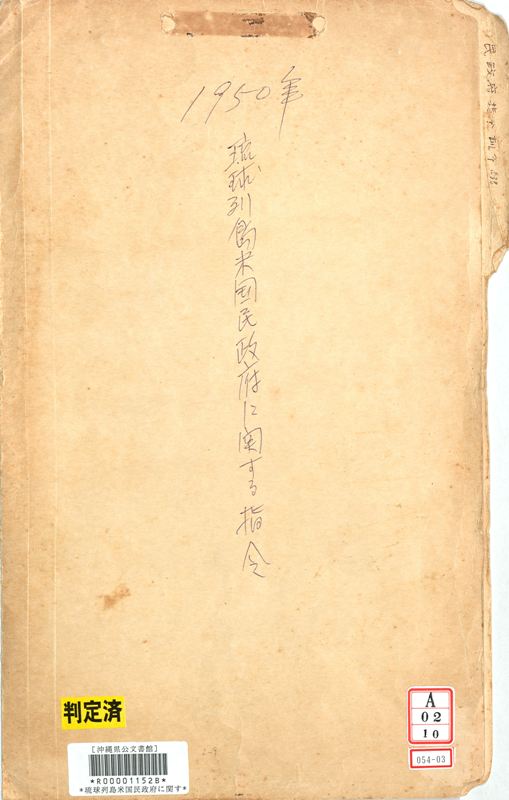 1950年
琉球列島米国民政府に関する指令
民政府指令
判定済
[沖縄県公文書館]
*R00001152B*
*琉球列島米国民政府に関す*
A
02
10
054-03